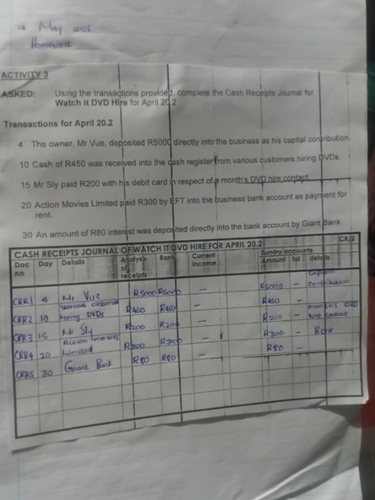 May
Homework
ACTIVITY 3
ASKED: Using the transactions provided, complete the Cash Receipts Journal for
Watch It DVD Hire for April 20.2
Transactions for April 20.2
4 The owner, Mr Vue, deposited R5000 directly into the business as his capital contribution.
10 Cash of R450 was received into the cash register from various customers hiring DVDs
15 Mr Sly paid R200 with his debit card in respect of a month's DVD hire contract
20 Action Movies Limited paid R300 by EFT into the business bank account as payment for
rent.
30 An amount of R80 interest was deposited directly into the bank account by Giant Bank.
CASH RECEIPTS JOURNAL OF WATCH IT DVD HIRE FOR APRIL 20.2 CR/2
Doc no Day Details Analysis of receipts Bank Current income Sundry accounts
amount fol details
CRR1 4 Mr Vue R5000 R5000 – R5000 – contribution
CRR2 10 various customer hiring DVDs R450 R450 – R450 –
CRR3 15 Mr Sly R200 R200 – R200 –
CRR4 20 Action movies Limited R300 R300 – –
CRR5 30 Giant Bank R80 R80 – R80 –